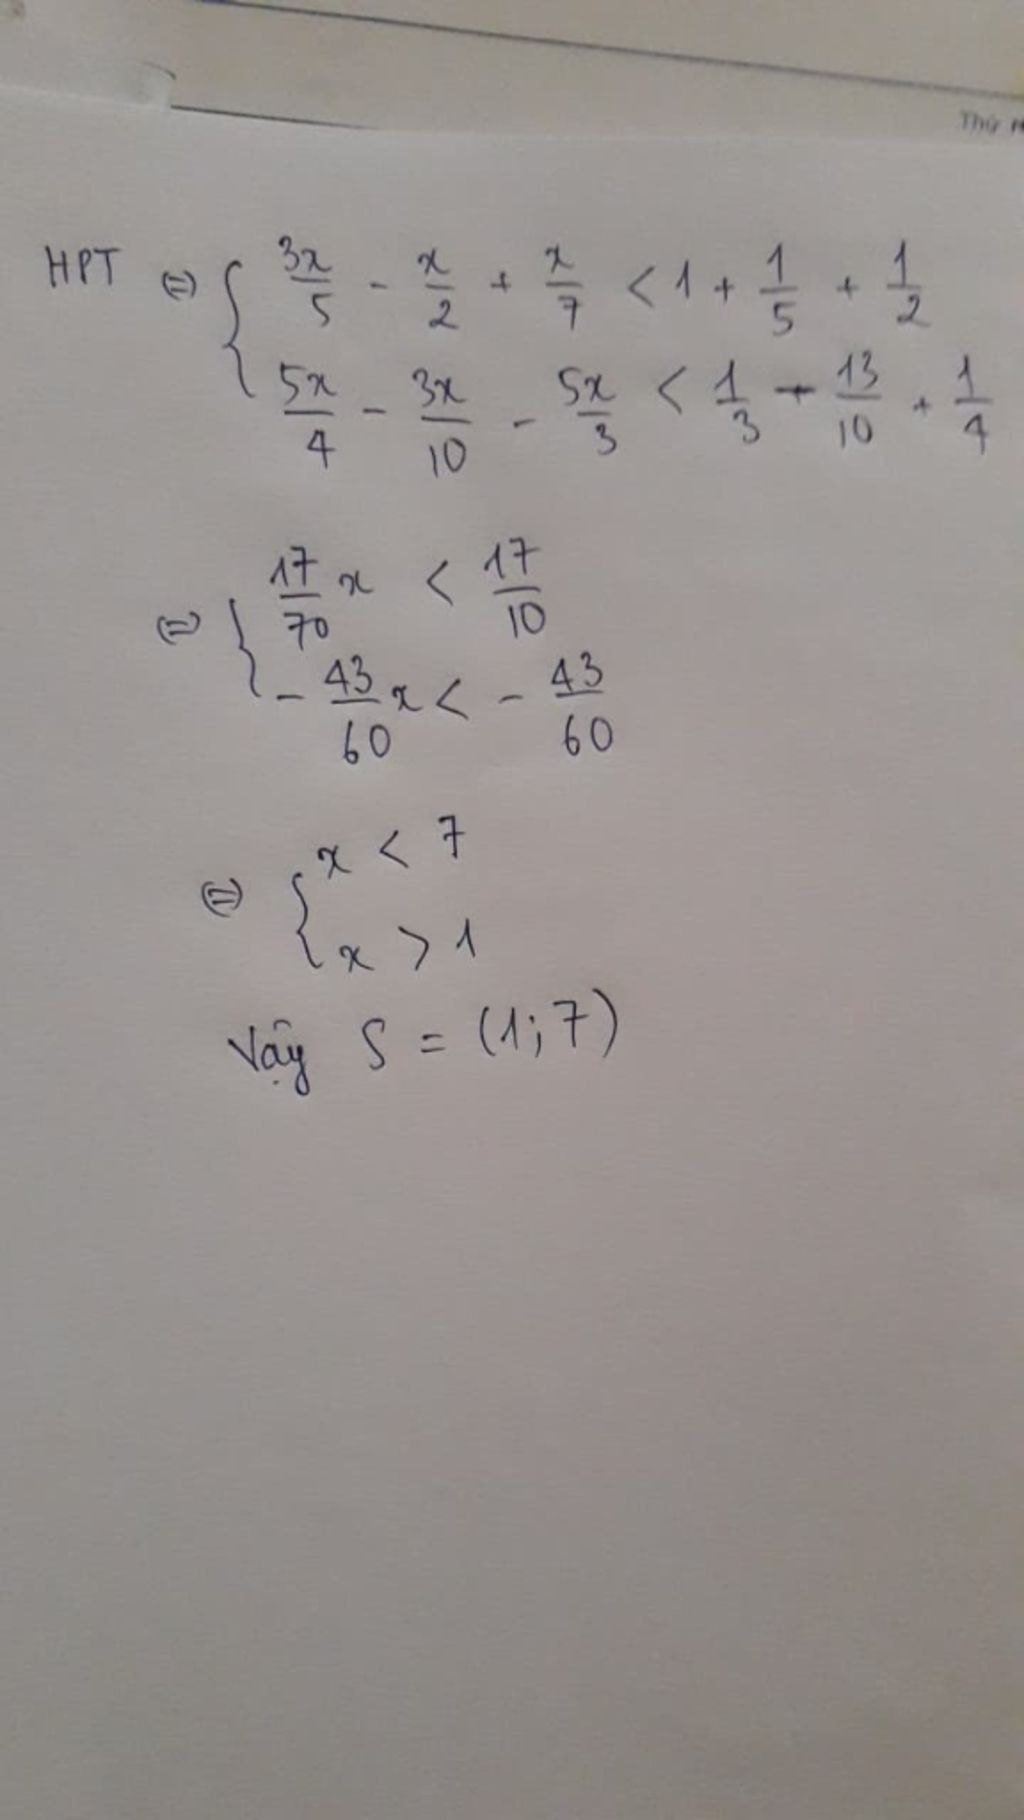 Thứ
HPT (=) { 3x/5 - x/2 + x/7 < 1 + 1/5 + 1/2
5x/4 - 3x/10 - 5x/3 < 1/3 - 13/10 + 1/4
(=) { 17/70 x < 17/10
- 43/60 x < - 43/60
(=) { x < 7
x > 1
Vậy S = (1; 7)